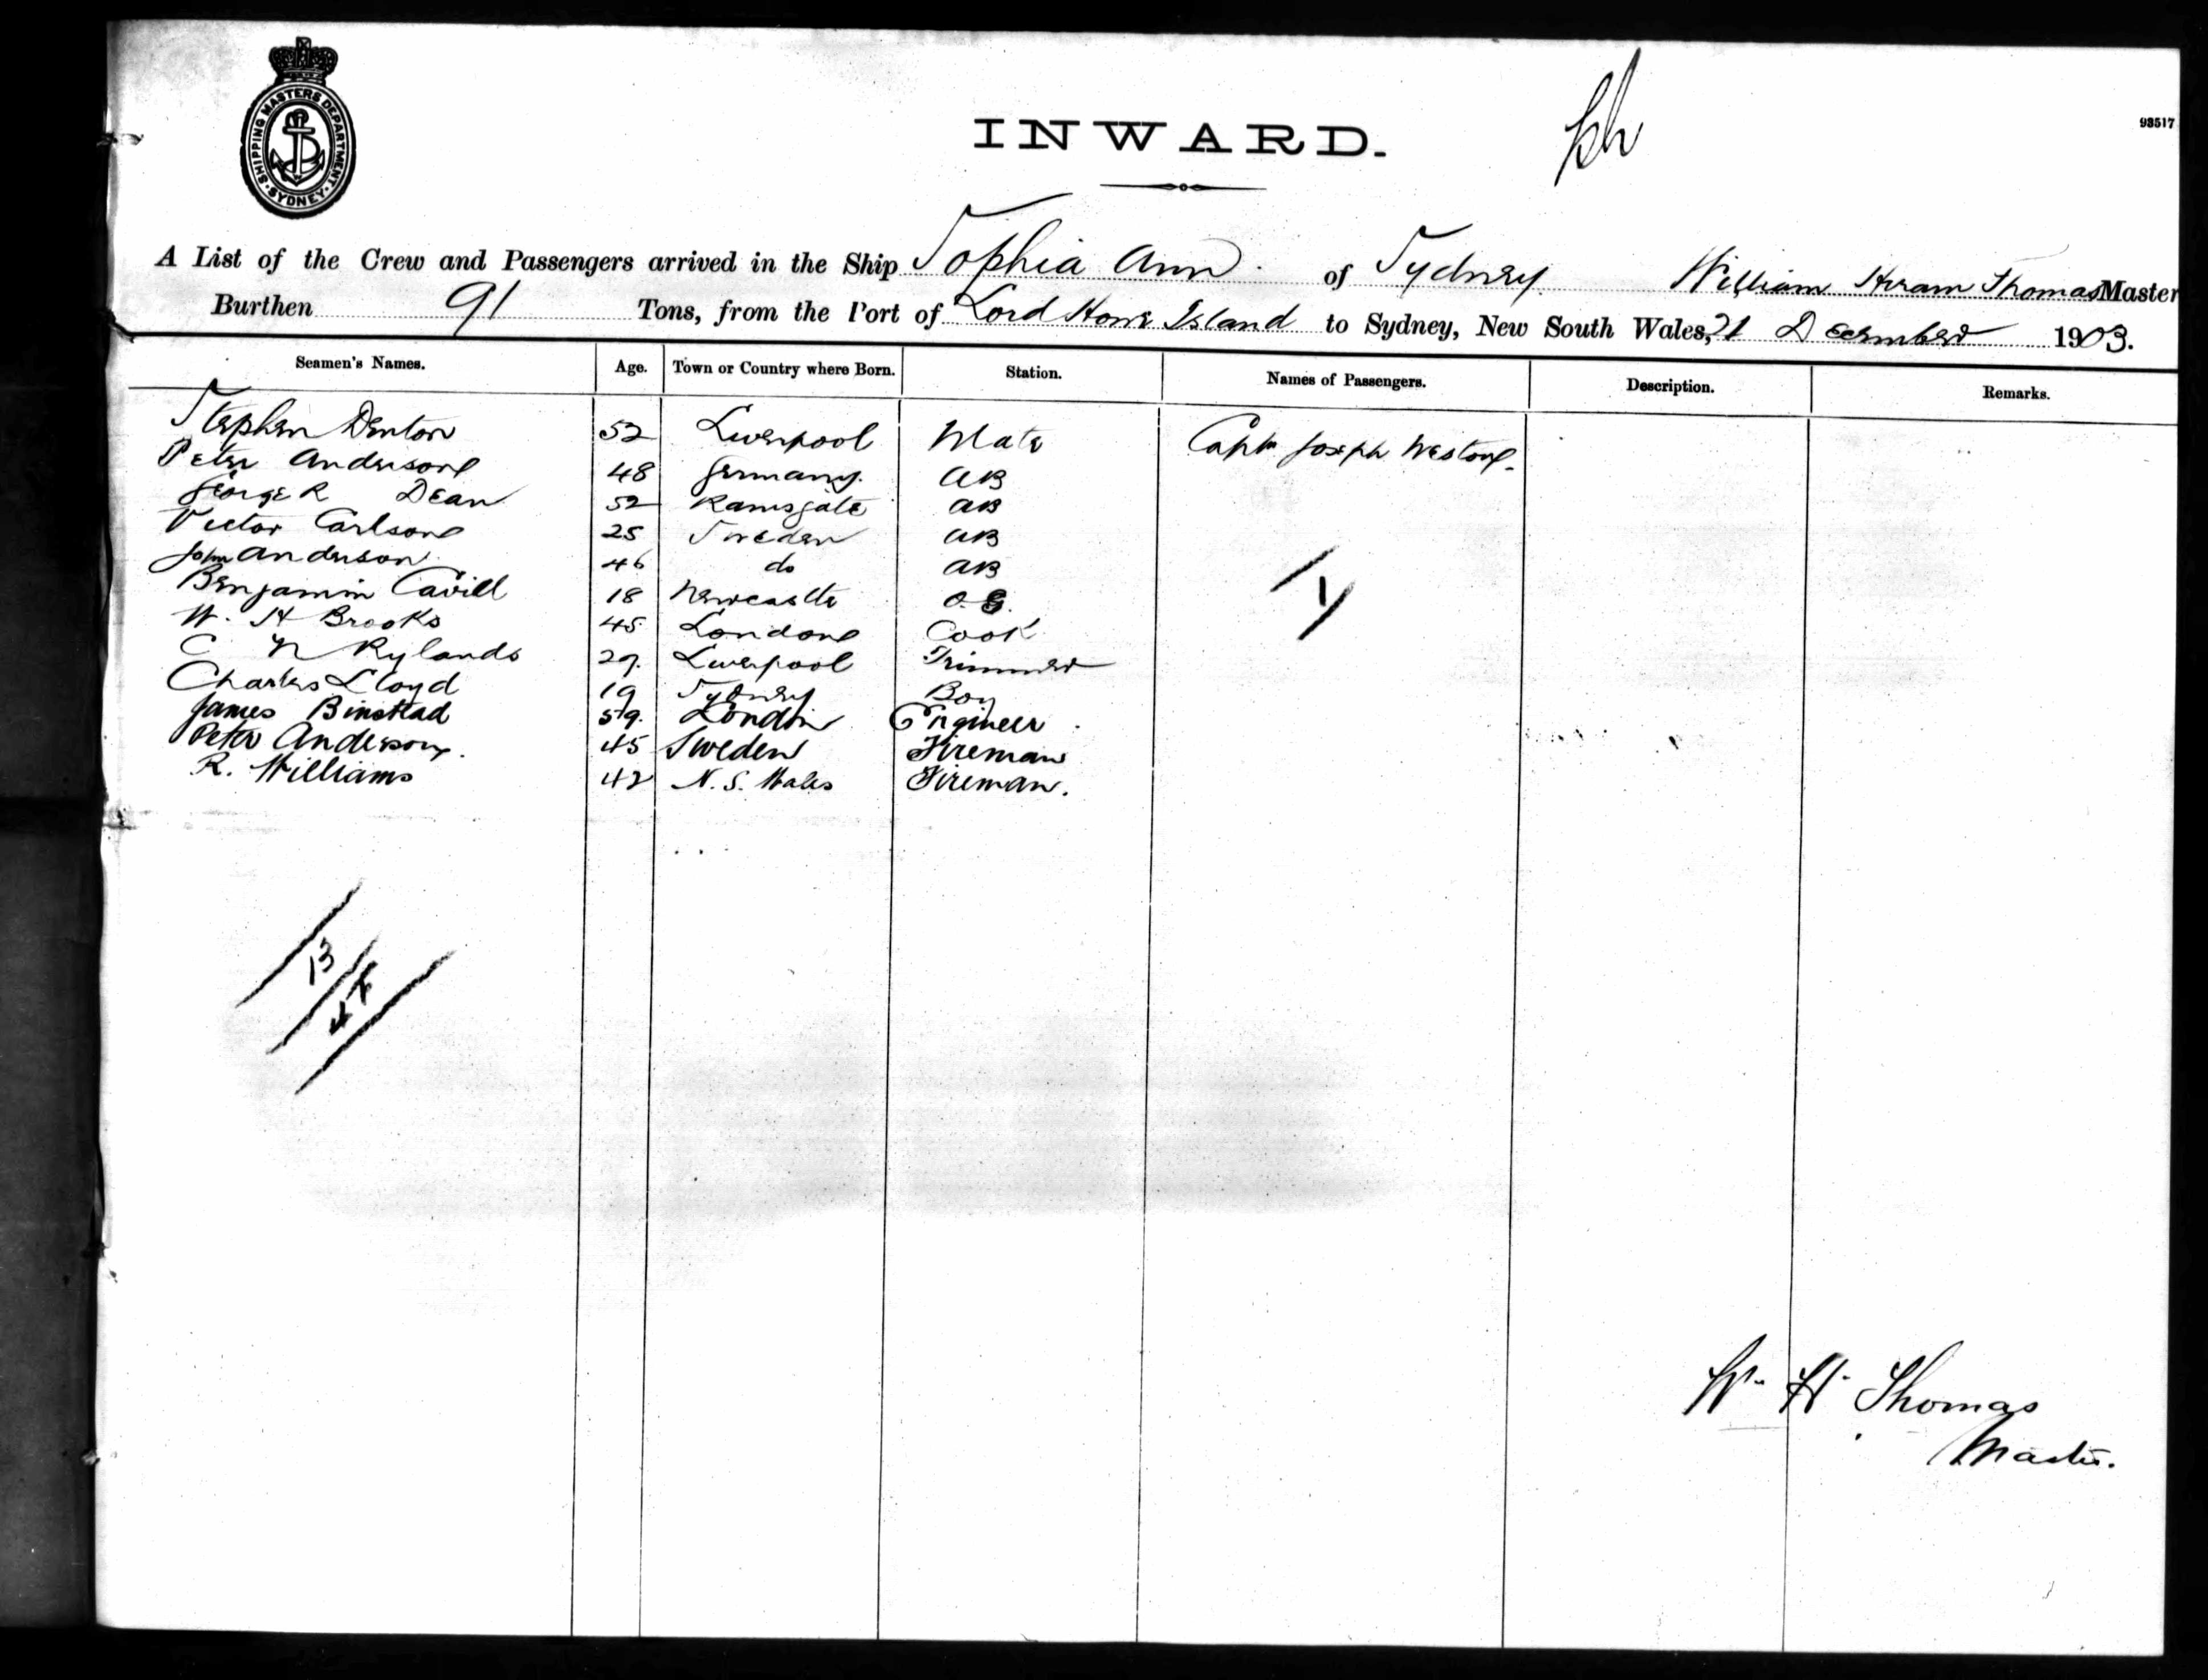 SHIPPING MASTERS DEPARTMENT · SYDNEY ·
INWARD.
93517
A List of the Crew and Passengers arrived in the Ship Sophia Ann of Sydney William Hiram Thomas Master
Burthen 91 Tons, from the Port of Lord Howe Island to Sydney, New South Wales, 21 December 1903.
Seamen's Names. Age. Town or Country where Born. Station. Names of Passengers. Description. Remarks.
Stephen Denton 52 Liverpool Mate Captn Joseph Weston.
Peter Anderson 48 Germany. AB
George R Dean 52 Ramsgate AB
Victor Carlson 25 Sweden AB
John Anderson 46 do AB
Benjamin Cavill 18 Newcastle O.S.
W. H Brooks 45 London Cook
C N Rylands 29. Liverpool Trimmer
Charles Lloyd 19 Sydney Boy
James Binstead 59. London Engineer
Peter Anderson. 45 Sweden Fireman
R. Williams 42 N. S. Wales Fireman.
1
13
Wm H Thomas
Master.